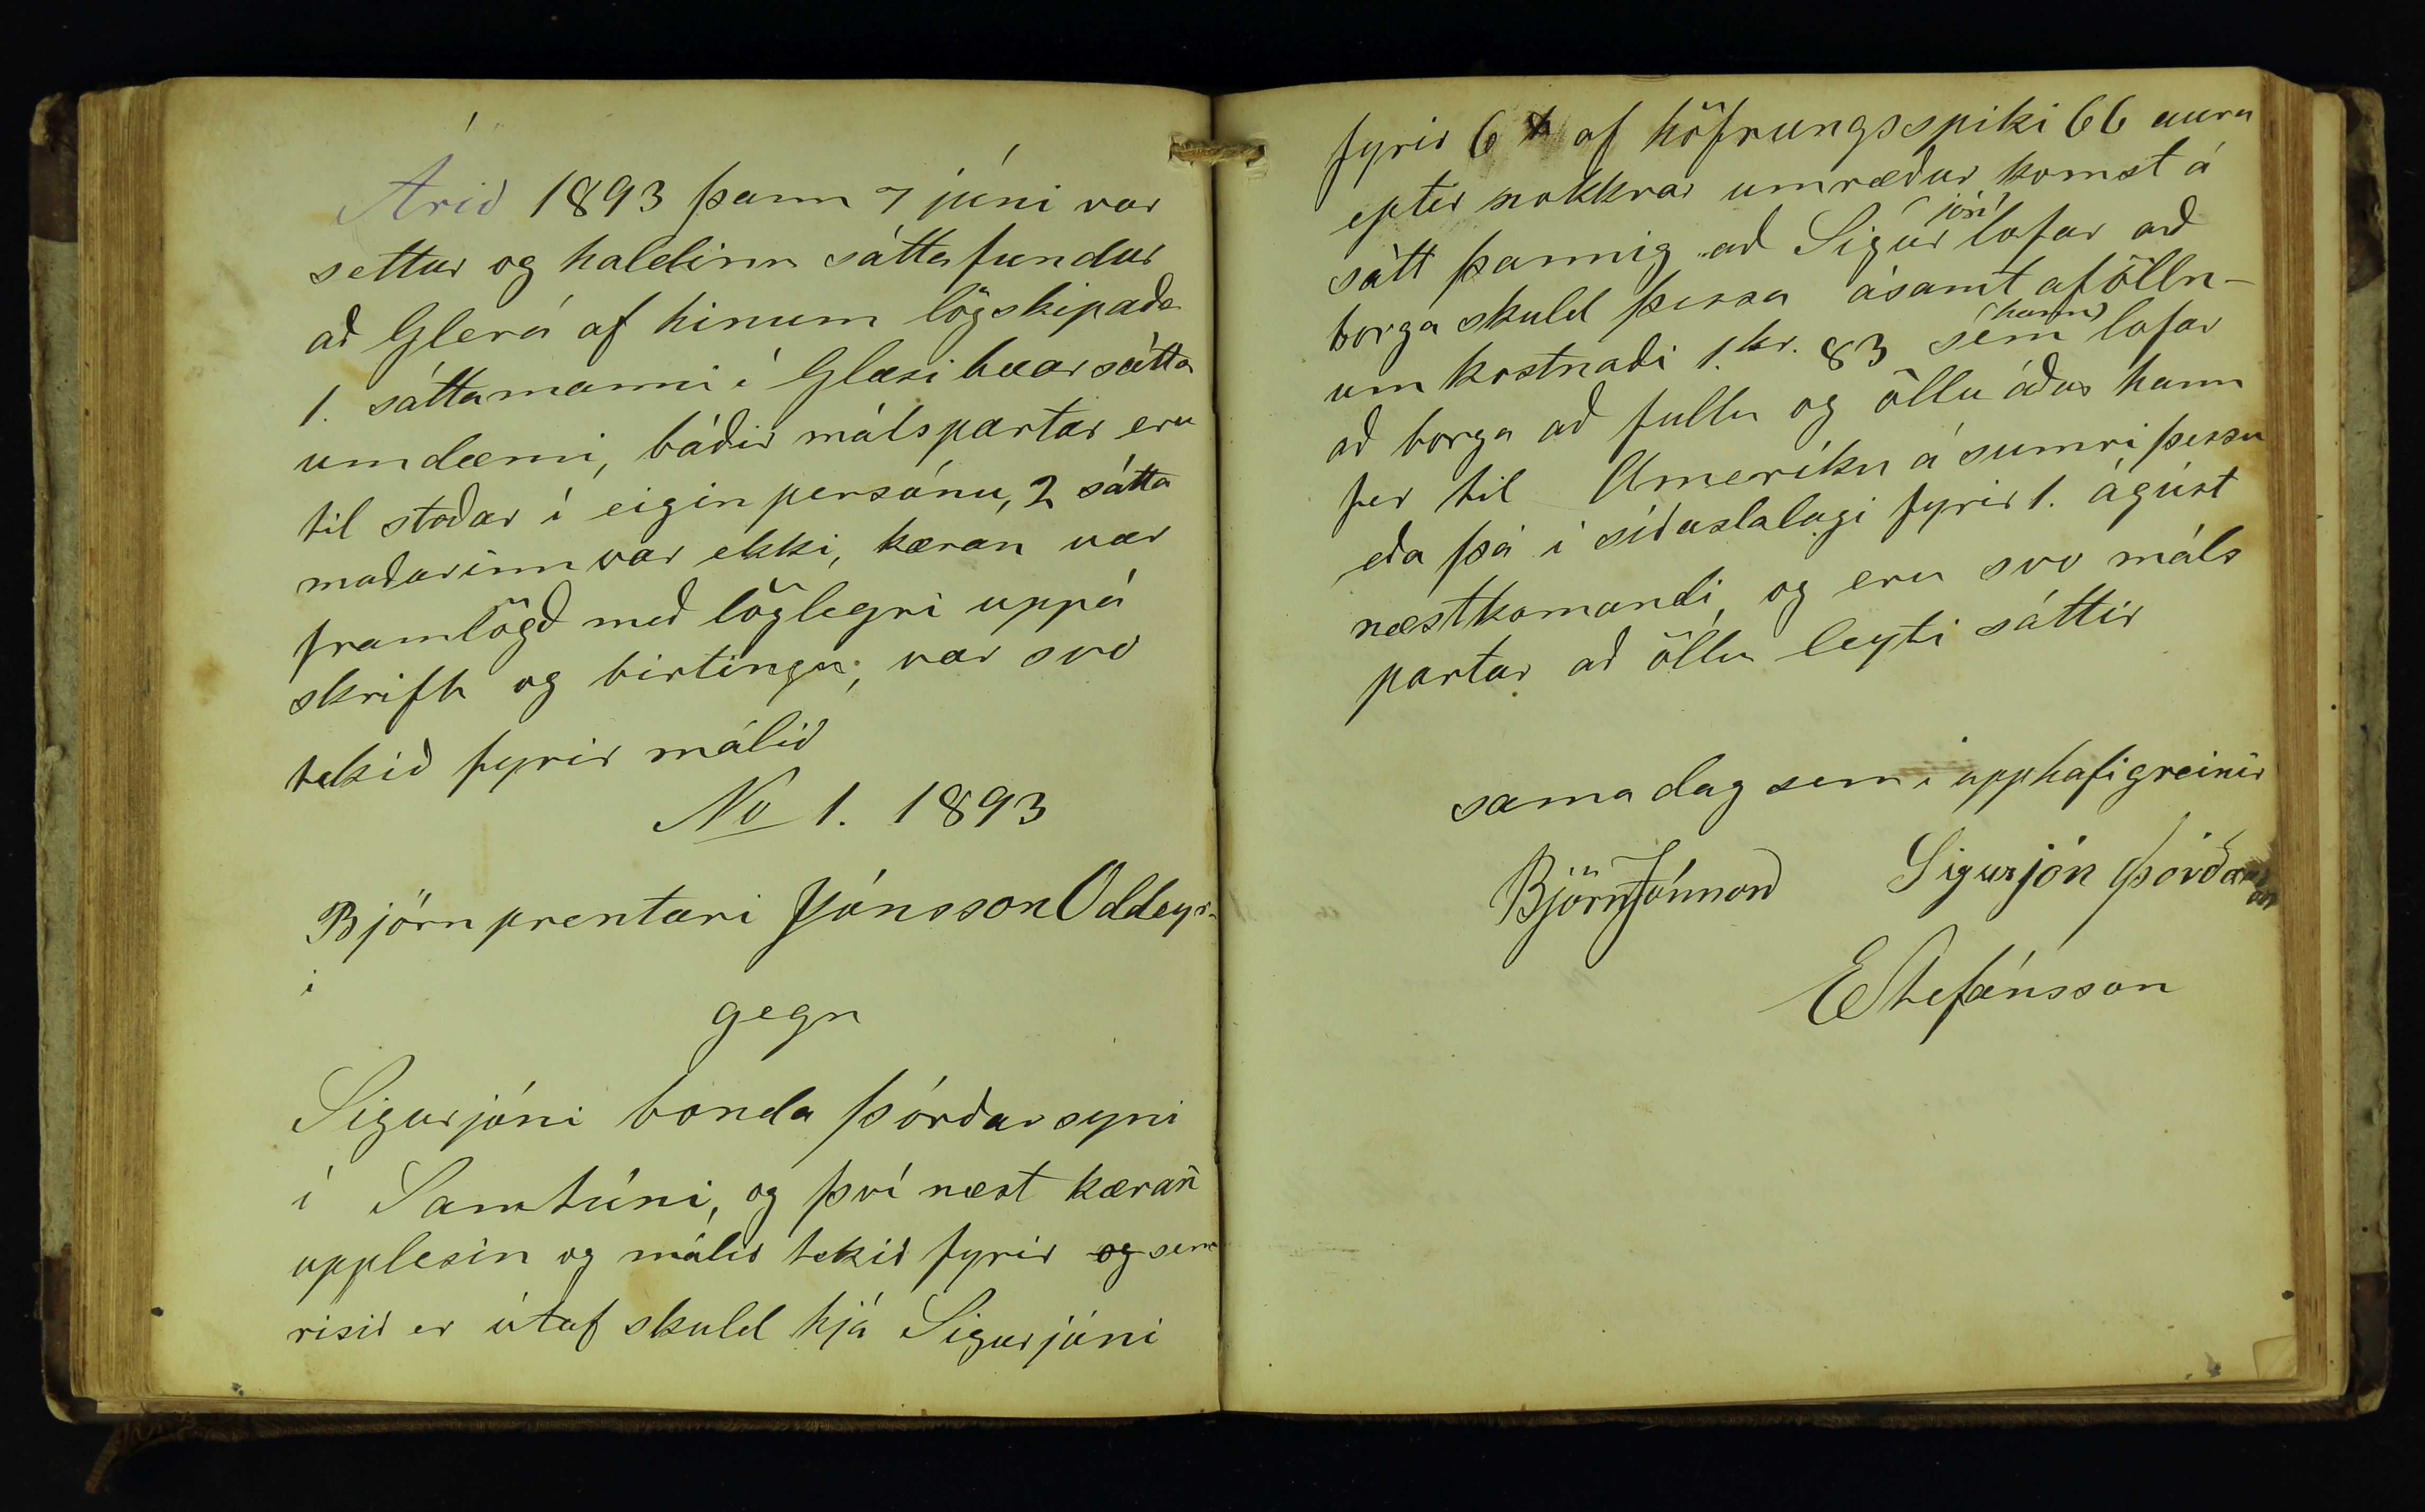 Árið 1893 þann 7 júni var
settur og haldinn sáttafundur
að Glerá af hinum lögskipaða
1. sáttamanni í Glæsibæar sátta
umdæmi, báðir málspartar eru
til staðar í eigin persónu, 2 sátta
maðurinn var ekki, kæran var
framlögð með löglegri uppá
skrift og birtingu, var svo
tekið fyrir málið
No 1. 1893
Björn prentari Jónsson Oddeyr-
i
gegn
Sigurjóni bonda Þórðarsyni
í Samtúni, og því næst kæran
upplesin og málið tekið fyrir og sem
risið er útaf skuld hjá Sigurjóni
fyrir 6 ℔ af höfrungsspiki 66 aura
eptir nokkrar umræður komst á
sátt þannig að Sigurjón lofar að
borga skuld þessa ásamt afölln-
um kostnaði 1. kr. 83 sem hann lofar
að borga að fullu og öllu áður hann
fer til Ameríku á sumri þessu
eða þá í síðastalagi fyrir 1. ágúst
næstkomandi, og eru svo máls
partar að öllu leyti sáttir
sama dag sem í upphafi greinir
Björn Jónsson Sigurjón Þórðarson
EStefánsson